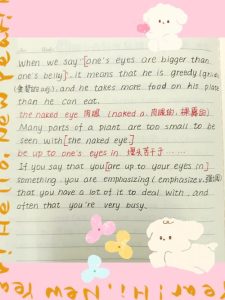 When we say [one's eyes are bigger than
one's belly], it means that he is greedy (
(贪婪的 adj), and he takes more food on his plate
than he can eat.
the naked eye 肉眼 (naked a. 肉眼的, 裸露的)
Many parts of a plant are too small to be
seen with [the naked eye]
be up to one's eyes in 埋头苦干于……
If you say that you [are up to your eyes in]
something, you are emphasizing (emphasize v. 强调)
that you have a lot of it to deal with, and
often that you're very busy.
Hello, New Year!
Year! Hi, New Yea